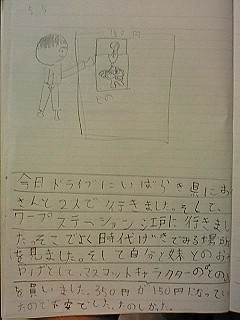 5 5
150円
今日ドライブにいばらき県にお
さんと2人で行きました。そして、
ワープステーション江戸に行きまし
た。そこでよく時代げきでみる場所
を見ました。そして自分と妹とのおみ
やげとして、マスコットキャラクターの
を買いました。350円が150円になってい
たのでした。たのしかった。